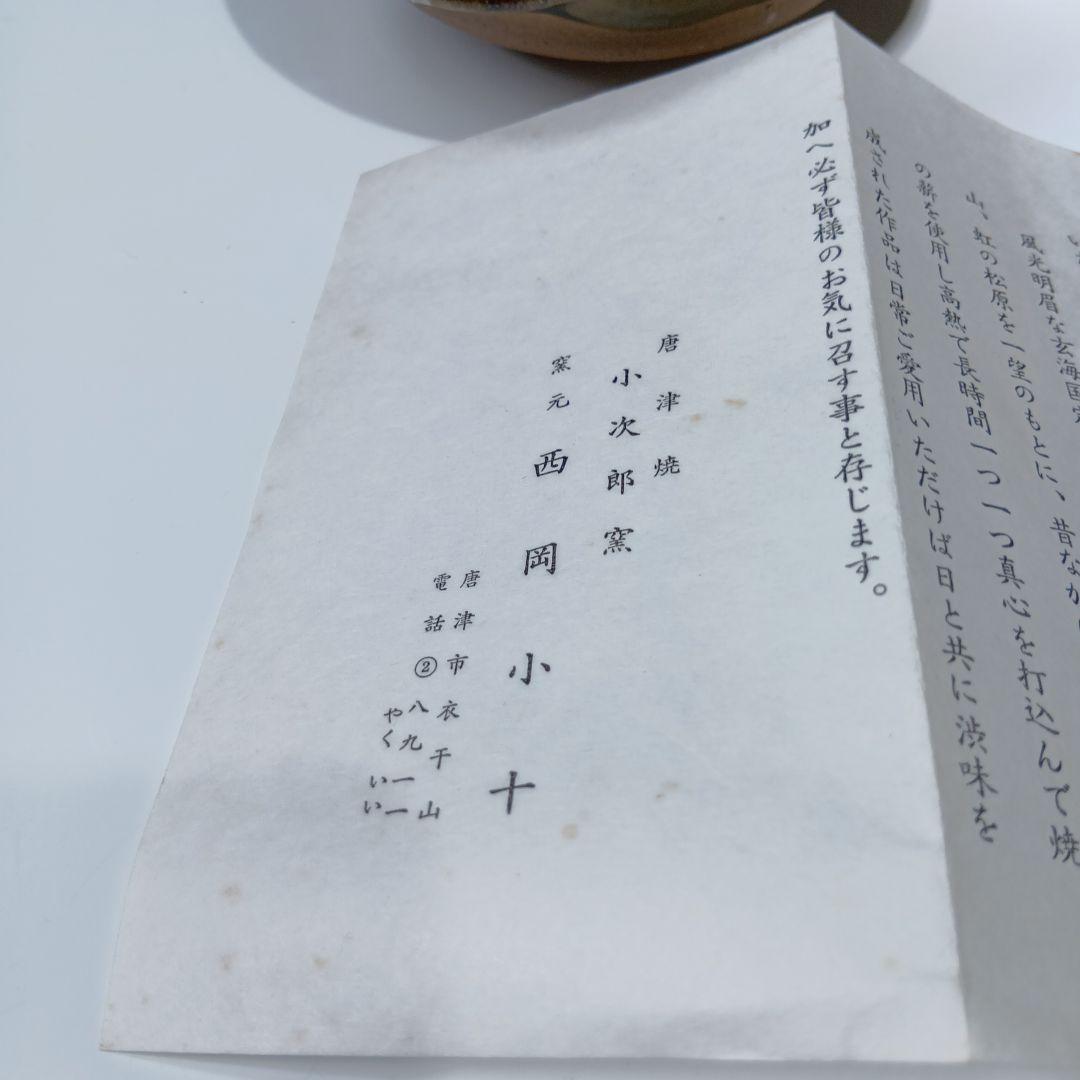 風光明眉な玄海国定
山、虹の松原を一望のもとに、昔なが
の薪を使用し高熱で長時間一つ一つ真心を打込んで焼
成された作品は日常ご愛用いただけば日と共に渋味を
加へ必ず皆様のお気に召す事と存じます。
唐津焼
小次郎窯
窯元 西岡小十
唐津市衣干山
電話②八九一一
やくいい